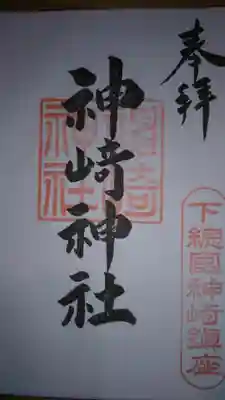 奉拝
下総國神崎鎮座
神崎神社
神崎神社